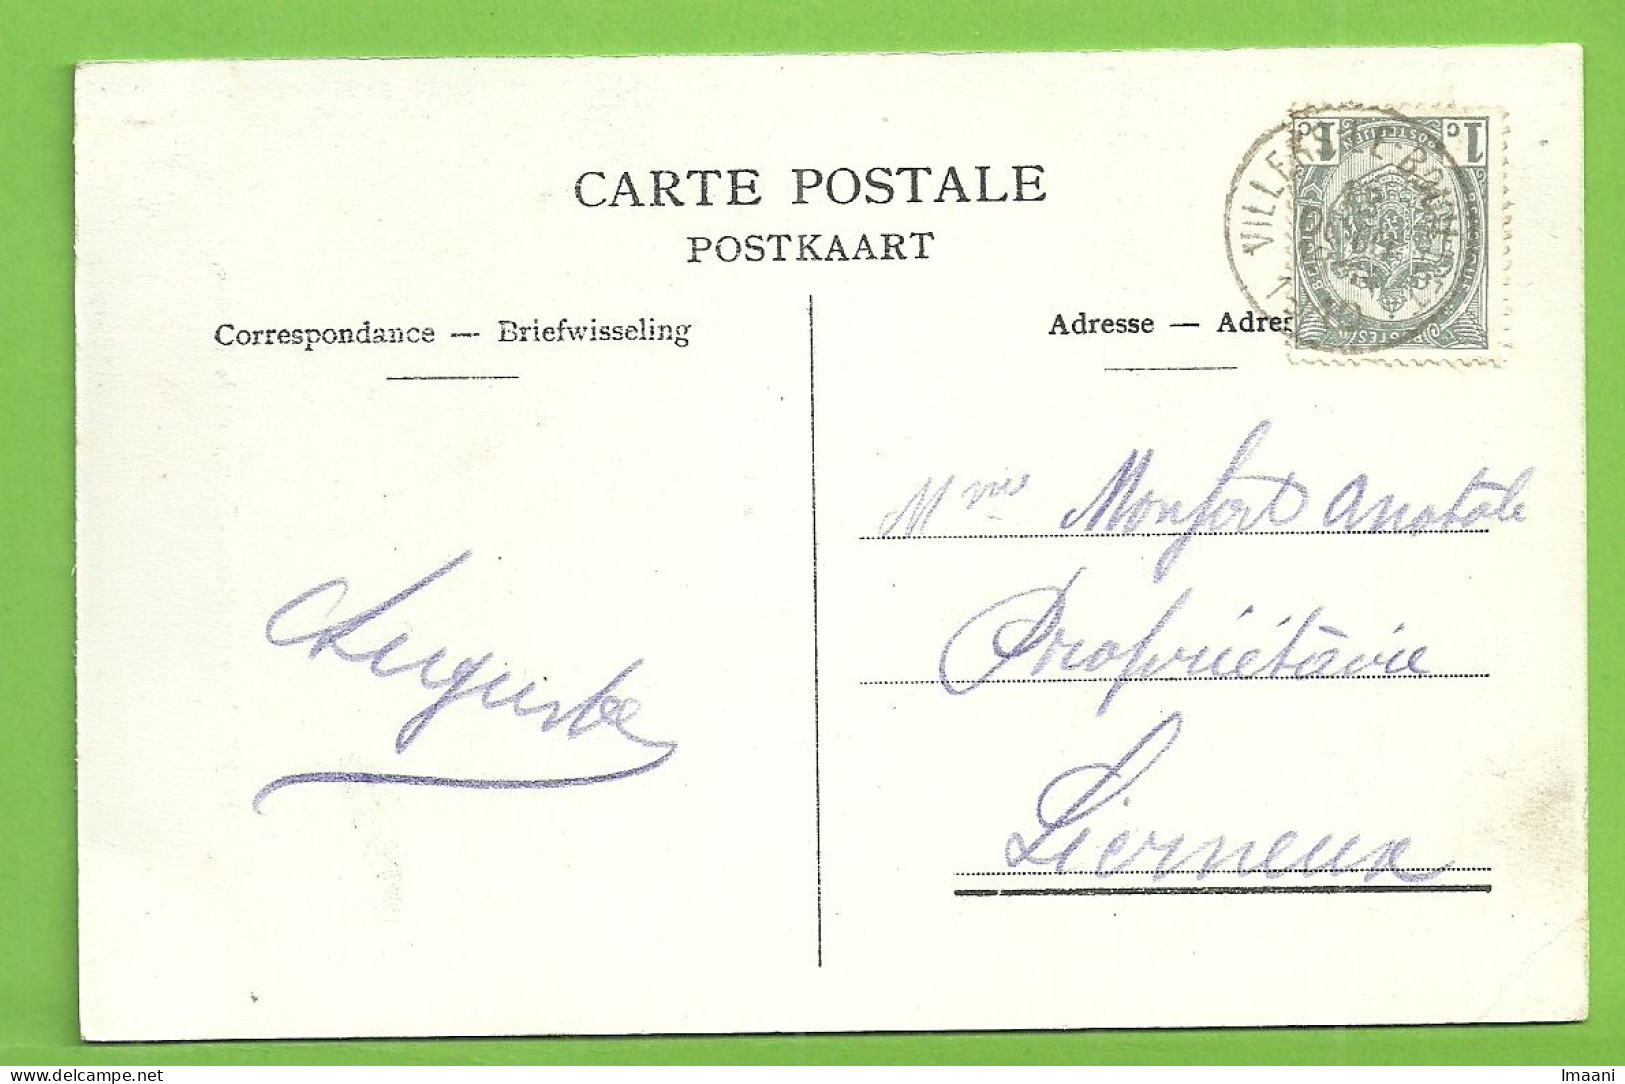 CARTE POSTALE
POSTKAART
Correspondance — Briefwisseling
Adresse — Adres
VILLERS-LE-BOUILLET
1 c 1 c
Monfort Anatole
Propriétaire
Lierneux
Auguste
delcampe.net
Imaani